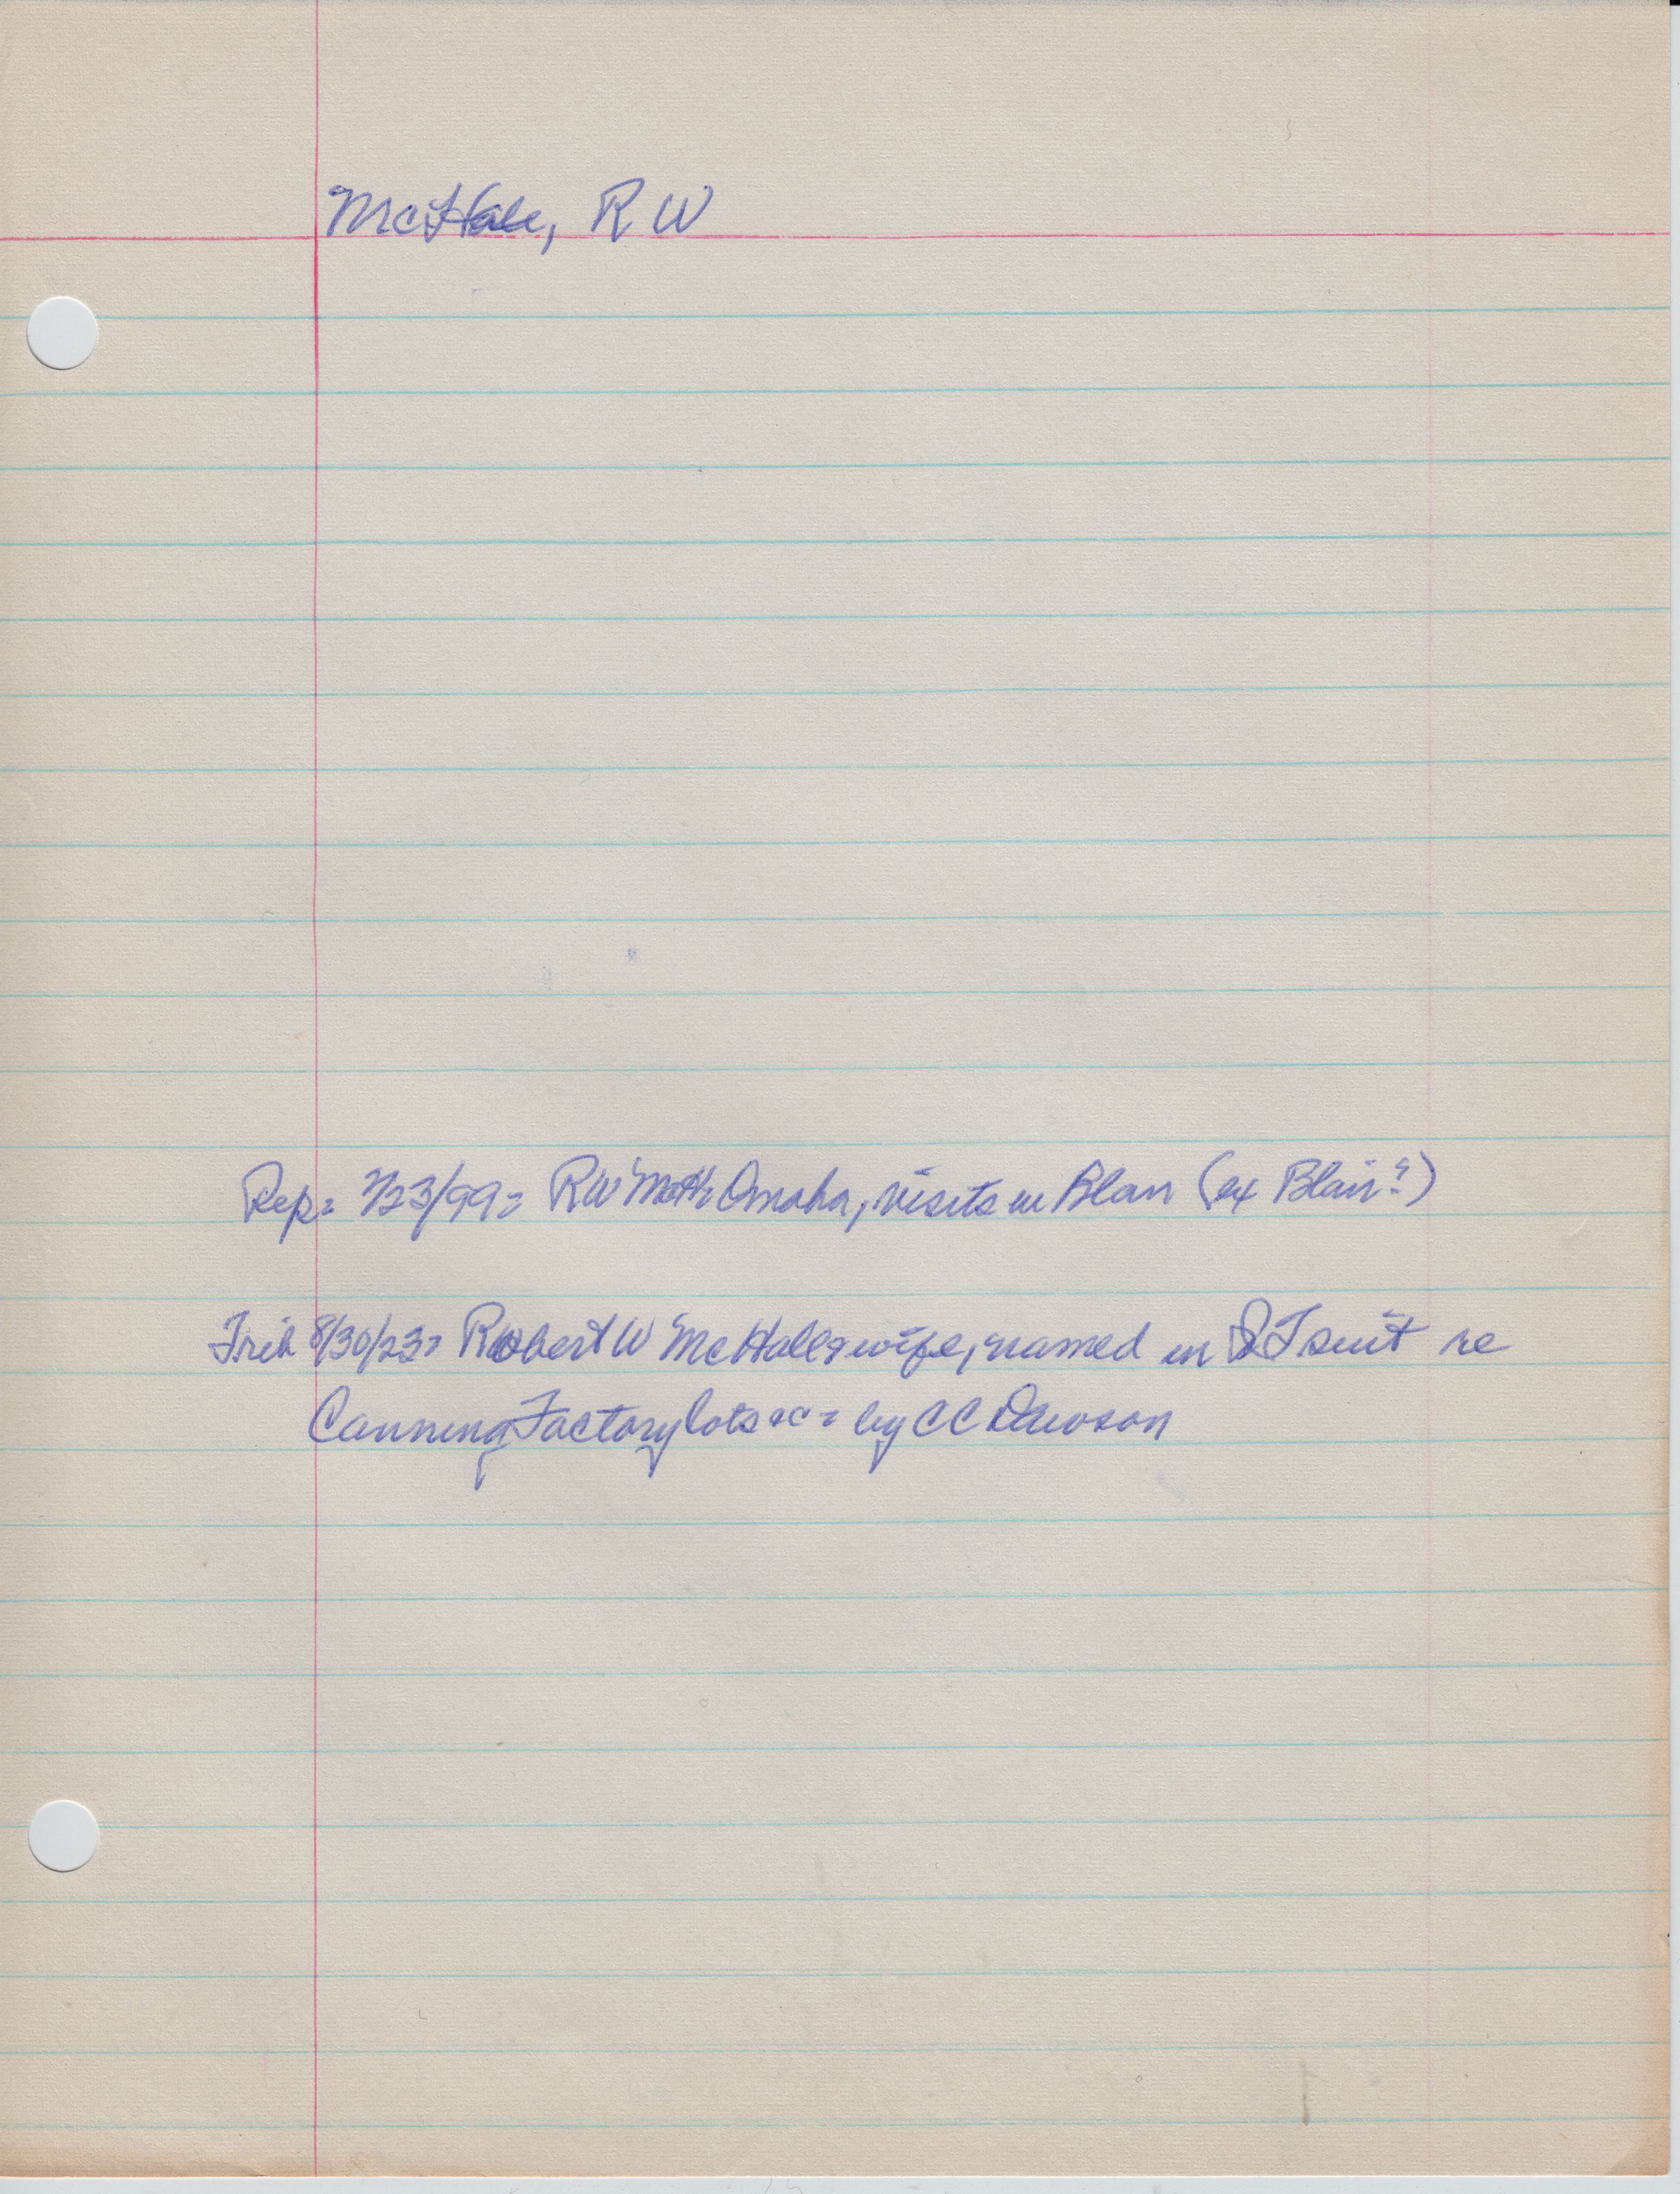 McHale, R W
Rep= 7/23/99= RW McH Omaha, visits in Blair (ex Blair?)
Trib 8/30/23= Robert W McHale & wife, named in QT suit re
Canning Factory lots &c= by CC Dawson